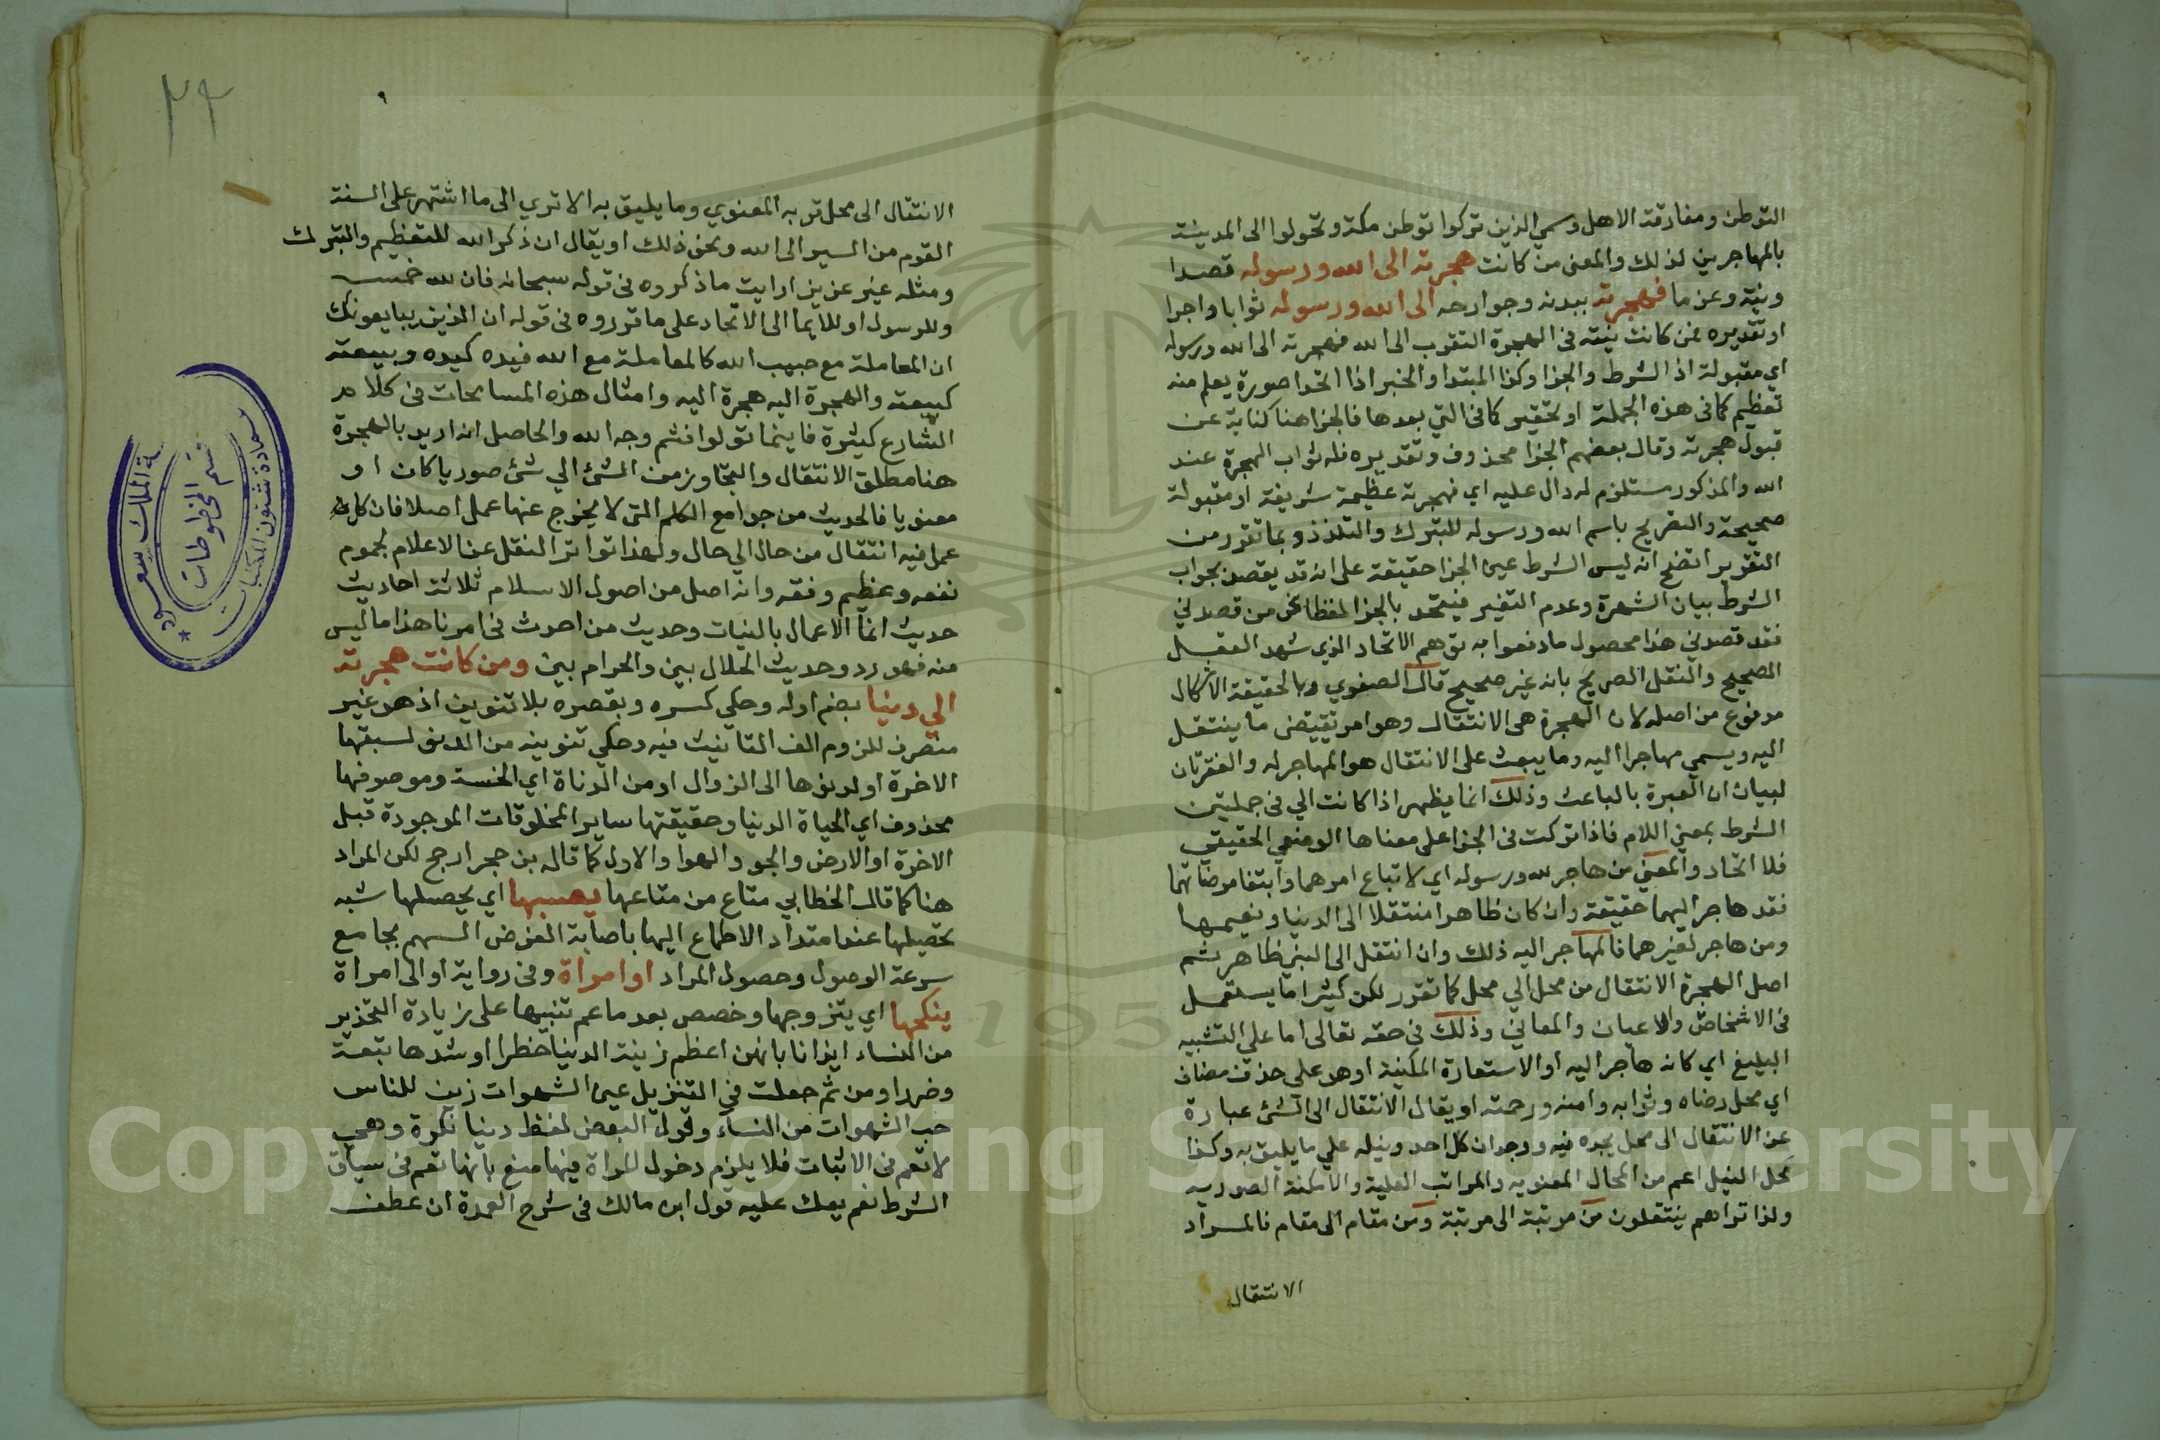 التوطن ومفارقة الاهل وسمي الذين تركوا توطن مكة وتحولوا الى المدينة
بالمهاجرين لذلك والمعنى من كانت هجرته الى الله ورسوله قصدا
ونية وعزما فهجرته ببدنه وجوارحه الى الله ورسوله ثوابا واجرا
او تقديره فمن كانت نيته في الهجرة التقرب الى الله فهجرته الى الله ورسوله
اي مقبولة اذ الشرط والجزا وكذا المبتدا والخبر اذا اتحدا صورة يعلم منه
تعظيم كما في هذه الجملة او تحقير كما في التي بعدها فالجزا هنا كناية عن
قبول هجرته وقال بعضهم الجزا محذوف وتقديره فله ثواب الهجرة عند
الله والمذكور مستلزم له دال عليه اي فهجرته عظيمة شريفة او مقبولة
صحيحة والتصريح باسم الله ورسوله للتبرك والتلذذ وبما تقرر من
التقرير اتضح انه ليس الشرط عين الجزا حقيقة على انه قد يقصد بجواب
الشرط بيان الشهرة وعدم التغير فيتحد بالجزا لفظا نحو من قصدني
فقد قصدني هذا محصول ما دفعوا به توهم الاتحاد الذي شهد العقل
الصحيح والنقل الصريح بانه غير صحيح قال الصفوي وبالحقيقة الاشكال
مدفوع من اصله لان الهجرة هي الانتقال وهو امر يقتضي ما ينتقل
اليه ويسمي مهاجرا اليه وما يبعث على الانتقال هو المهاجر له والفقرتان
لبيان ان العبرة بالباعث وذلك انما يظهر اذا كانت الي في جملتين
الشرط بمعنى اللام فاذا تركت في الجزا على معناها الوضعي الحقيقي
فلا اتحاد والمعنى من هاجر لله ورسوله اي لاتباع امرهما وابتغا مرضاتهما
فقد هاجر اليهما حقيقة وان كان ظاهرا منتقلا الى الدنيا ونعيمها
ومن هاجر لغيرهما فالمهاجر اليه ذلك وان انتقل الى النبي ظاهر ثم
اصل الهجرة الانتقال من محل الي محل كما تقرر لكن كثيرا ما يستعمل
في الاشخاص والاعيان والمعاني وذلك في حقه تعالى اما علي التشبيه
البليغ اي كانه هاجر اليه او الاستعارة المكنية او هو علي حذف مضاف
اي محل رضاه وثوابه وامنه ورحمته او يقال الانتقال الى الشئ عبارة
عن الانتقال الى محل يجده فيه ووجدان كل احد ونيله علي ما يليق به وكذا
محل النيل اعم من المحال المعنويه والمراتب العلية والامكنة الصوريه
ولذا تراهم ينتقلون من مرتبة الى مرتبة ومن مقام الى مقام فالمراد
الانتقال
٩
الانتقال الى محل قربه المعنوي وما يليق به الا تري الى ما اشتهر على السنة
القوم من السير الى الله ونحو ذلك او يقال ان ذكر الله للتعظيم والتبرك
ومثله غير عزيز ارايت ما ذكروه في قوله سبحانه فان لله خمسه
وللرسول او للايما الى الاتحاد على ما قرروه في قوله ان الذين يبايعونك
ان المعاملة مع حبيب الله كالمعاملة مع الله فيده كيده وبيعته
كبيعته والهجرة اليه هجرة اليه وامثال هذه المسامحات في كلام
الشارع كثيرة فاينما تولوا فثم وجه الله والحاصل انه اريد بالهجرة
هنا مطلق الانتقال والتجاوز من الشئ الي شئ صوريا كان او
معنويا فالحديث من جوامع الكلم التي لا يخرج عنها عمل اصلا فان كل
عمل فيه انتقال من حال الي حال ولهذا تواتر النقل عن الاعلام لجموم
نفعه وعظيم وقعه وانه اصل من اصول الاسلام ثلاثة احاديث
حديث انما الاعمال بالنيات وحديث من احدث في امرنا هذا ما ليس
منه فهو رد وحديث الحلال بين والحرام بين ومن كانت هجرته
الي دنيا بضم اوله وحكي كسره وبقصره بلا تنوين اذ هو غير
منصرف للزوم الف التانيث فيه وحكي تنوينه من الدنو لسبقها
الاخرة او لدنوها الى الزوال او من الدناة اي الخسة وموصوفها
محذوف اي الحياة الدنيا وحقيقتها ساير المخلوقات الموجودة قبل
الاخرة او الارض والجو والهوا والاول كما قاله بن حجر ارجح لكن المراد
هنا كما قال الخطابي متاع من متاعها يصيبها اي يحصلها شبه
تحصيلها عند امتداد الاطماع اليها باصابة الغرض السهم بجامع
سرعة الوصول وحصول المراد او امراة وفي رواية او الى امراة
ينكحها اي يتزوجها وخصص بعد ما عم تنبيها على زيادة التحذير
من النساء ايذانا بانهن اعظم زينة الدنيا خطرا واشدها تبعة
وضررا ومن ثم جعلت في التنزيل عين الشهوات زين للناس
حب الشهوات من النساء وقول البعض لفظ دنيا نكرة وهي
لا تعم في الاثبات فلا يلزم دخول المراة فيها منع بانها تعم في سياق
الشرط نعم يعك عليه قول ابن مالك في شرح العمدة ان عطف
عمادة شئون المكتبات
قسم المخطوطات
الملك سعود
1957
Copyright © King Saud University